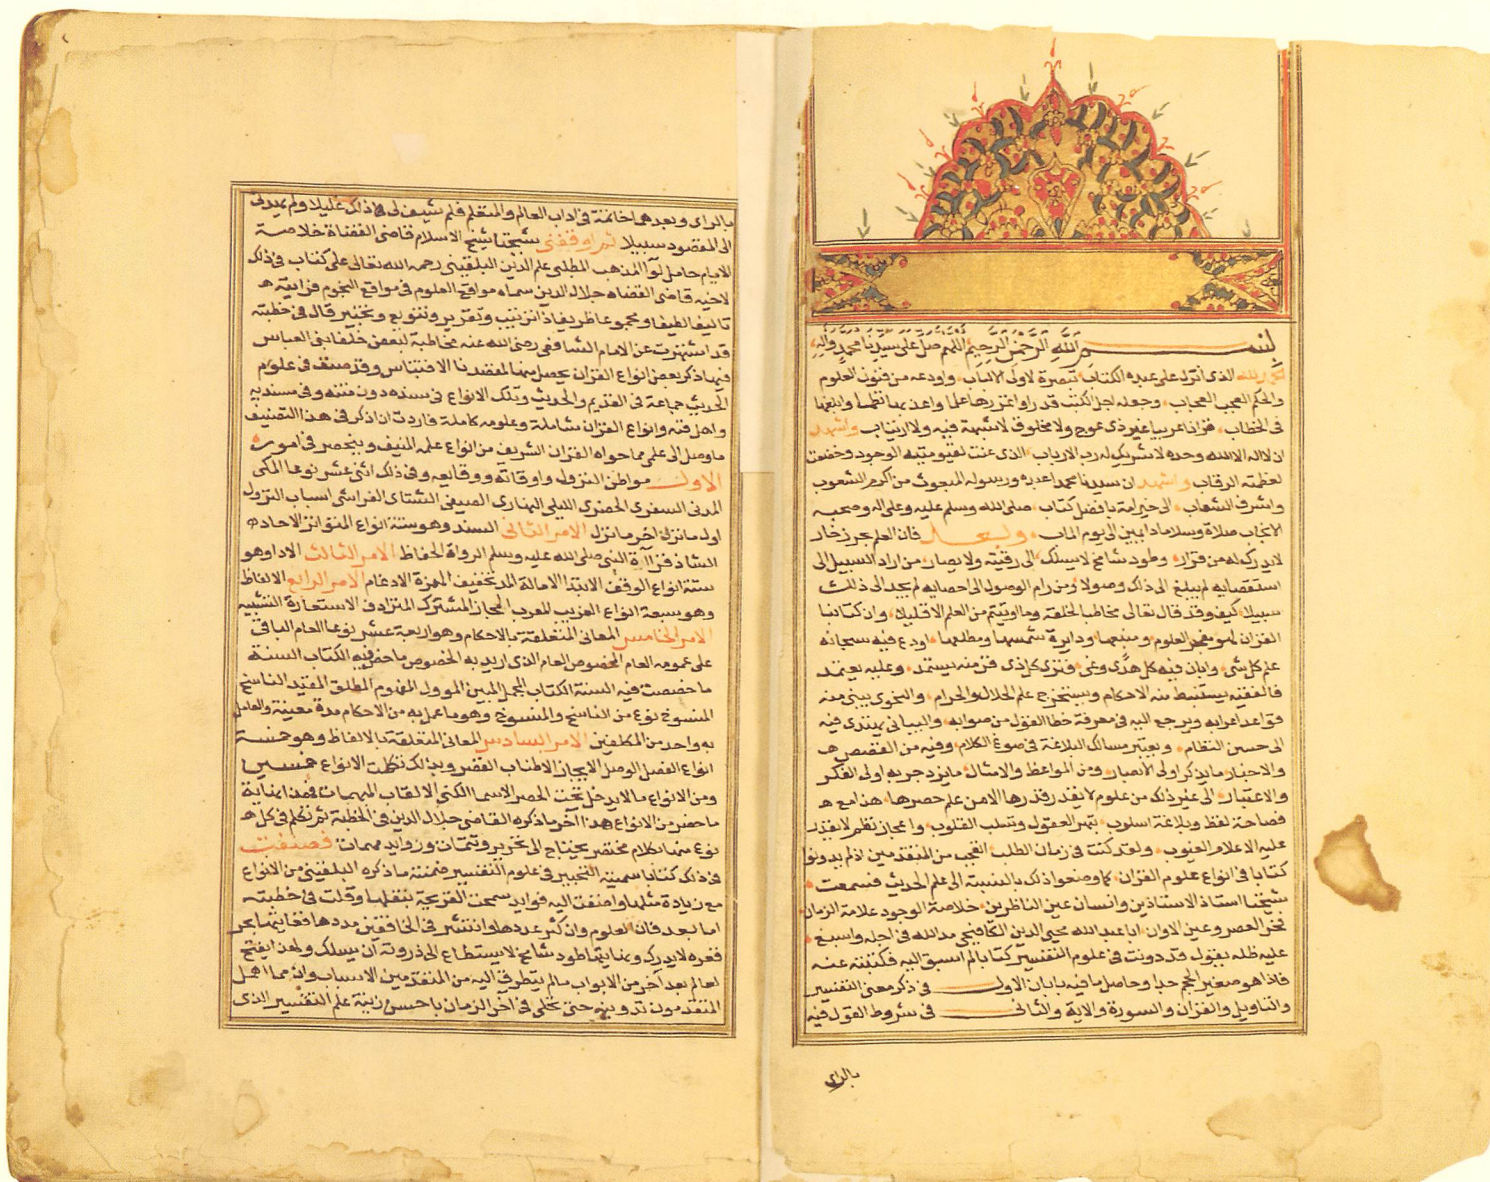 بسم الله الرحمن الرحيم اللهم صل على سيدنا محمد واله
الحمد لله الذى انزل على عبده الكتاب تبصرة لاولى الالباب واودعه من فنون العلوم
والحكم العجب العجاب وجعله اجل الكتب قدرا واغزرها علما واعذبها نظما وابلغها
فى الخطاب قرانا عربيا غير ذى عوج ولا مخلوق لا شبهة فيه ولا ارتياب واشهد
ان لا اله الا الله وحده لا شريك له رب الارباب الذى عنت لقيوميته الوجوه وخضعت
لعظمته الرقاب واشهد ان سيدنا محمدا عبده ورسوله المبعوث من اكرم الشعوب
واشرف الشعاب الى خير امة بافضل كتاب صلى الله وسلم عليه وعلى اله وصحبه
الانجاب صلاة وسلاما دايمين الى يوم الماب وبعد فان العلم بحر زخار
لا يدرك له من قرار وطود شامخ لا يسلك الى رقيته ولا يصار من اراد السبيل الى
استقصايه لم يبلغ الى ذلك وصولا ومن رام الوصول الى احصايه لم يجد الى ذلك
سبيلا كيف وقد قال تعالى مخاطبا لخلقه وما اوتيتم من العلم الا قليلا وان كتابنا
القران لهو مفجر العلوم ومنبعها ودايرة شمسها ومطلعها اودع فيه سبحانه
علم كل شى وابان فيه كل هدى وغى فترى كل ذى فن منه يستمد وعليه يعتمد
فالفقيه يستنبط منه الاحكام ويستخرج علم الحلال والحرام والنحوى يبنى منه
قواعد اعرابه ويرجع اليه فى معرفة خطا القول من صوابه والبيانى يهتدى فيه
الى حسن النظام ويعتبر مسالك البلاغة فى صوغ الكلام وفيه من القصص
والاخبار ما يذكر اولى الابصار ومن المواعظ والامثال ما يزدجر به اولى الفكر
والاعتبار الى غير ذلك من علوم لا يقدر قدرها الا من علم حصرها هذا مع
فصاحة لفظ وبلاغة اسلوب تبهر العقول وتسلب القلوب واعجاز نظم لا يقدر
عليه الا علام الغيوب ولقد كنت فى زمان الطلب اتعجب من المتقدمين اذ لم يدونوا
كتابا فى انواع علوم القران كما وضعوا ذلك بالنسبة الى علم الحديث فسمعت
شيخنا استاذ الاستاذين وانسان عين الناظرين خلاصة الوجود علامة الزمان
فخر العصر وعين الاوان ابا عبد الله محيى الدين الكافيجى مد الله فى اجله واسبغ
عليه ظله يقول قد دونت فى علوم التفسير كتابا لم اسبق اليه فكتبته عنه
فاذا هو صغير الحجم جدا وحاصل ما فيه بابان الاول فى ذكر معنى التفسير
والتاويل والقران والسورة والاية والثانى فى شروط القول فيه
بالراى
بالراى وبعدهما خاتمة فى اداب العالم والمتعلم فلم يشف لى ذلك غليلا ولم يهدنى
الى المقصود سبيلا ثم اوقفنى شيخنا شيخ الاسلام قاضى القضاة خلاصة
الايام حامل لوا المذهب المطلبى علم الدين البلقينى رحمه الله تعالى على كتاب فى ذلك
لاخيه قاضى القضاه جلال الدين سماه مواقع العلوم فى مواقع النجوم فرايته
تاليفا لطيفا ومجموعا ظريفا ذا ترتيب وتقرير وتنويع وتحبير قال فى خطبته
قد اشتهرت عن الامام الشافعى رضى الله عنه مخاطبة لبعض خلفا بنى العباس
فيها ذكر بعض انواع القران يحصل منها لمقصدنا الاقتباس وقد صنف فى علوم
الحديث جماعة فى القديم والحديث وتلك الانواع فى سنده دون متنه وفى مسنديه
واهل فنه وانواع القران شاملة وعلومه كاملة فاردت ان اذكر فى هذا التصنيف
ما وصل الى علمى مما حواه القران الشريف من انواع علمه المنيف وينحصر فى امور
الاول مواطن النزول واوقاته ووقايعه وفى ذلك اثنى عشر نوعا المكى
المدنى السفرى الحضرى الليلى النهارى الصيفى الشتاى الفراشى اسباب النزول
اول ما نزل اخر ما نزل الامر الثانى السند وهو ستة انواع المتواتر الاحاد
الشاذ قراآة النبى صلى الله عليه وسلم الرواة الحفاظ الامر الثالث الادا وهو
ستة انواع الوقف الابتدا الامالة المد تخفيف الهمزة الادغام الامر الرابع الالفاظ
وهو سبعة انواع الغريب المعرب المجاز المشترك المترادف الاستعارة التشبيه
الامر الخامس المعانى المتعلقة بالاحكام وهو اربعة عشر نوعا العام الباقى
على عمومه العام المخصوص العام الذى اريد به الخصوص ما خص فيه الكتاب السنة
ما خصصت فيه السنة الكتاب المجمل المبين الموول المفهوم المطلق المقيد الناسخ
المنسوخ نوع من الناسخ والمنسوخ وهو ما عمل به من الاحكام مدة معينة والعامل
به واحد من المكلفين الامر السادس المعانى المتعلقة بالالفاظ وهو خمسة
انواع الفصل الوصل الايجاز الاطناب القصر وبذلك تكملت الانواع خمسين
ومن الانواع ما لا يدخل تحت الحصر الاسما الكنى الالقاب المبهمات فهذا نهاية
ما حصر من الانواع هذا اخر ما ذكره القاضى جلال الدين فى الخطبة ثم تكلم فى كل
نوع منها بكلام مختصر يحتاج الى تحرير وتتمات وزوايد مهمات فصنفت
فى ذلك كتابا سميته التحبير فى علوم التفسير ضمنته ما ذكره البلقينى من الانواع
مع زيادة مثلها واضفت اليه فوايد سمحت القريحة بنقلها وقلت فى خطبته
اما بعد فان العلوم وان كثر عددها وانتشر فى الخافقين مددها فغايتها بحر
قعره لا يدرك ونهايتها طود شامخ لا يستطاع الى ذروته ان يسلك ولهذا يفتح
لعالم بعد آخر من الابواب ما لم يتطرق اليه من المتقدمين الاسباب وان مما اهمل
المتقدمون تدوينه حتى تحلى فى اخر الزمان باحسن زينة علم التفسير الذى